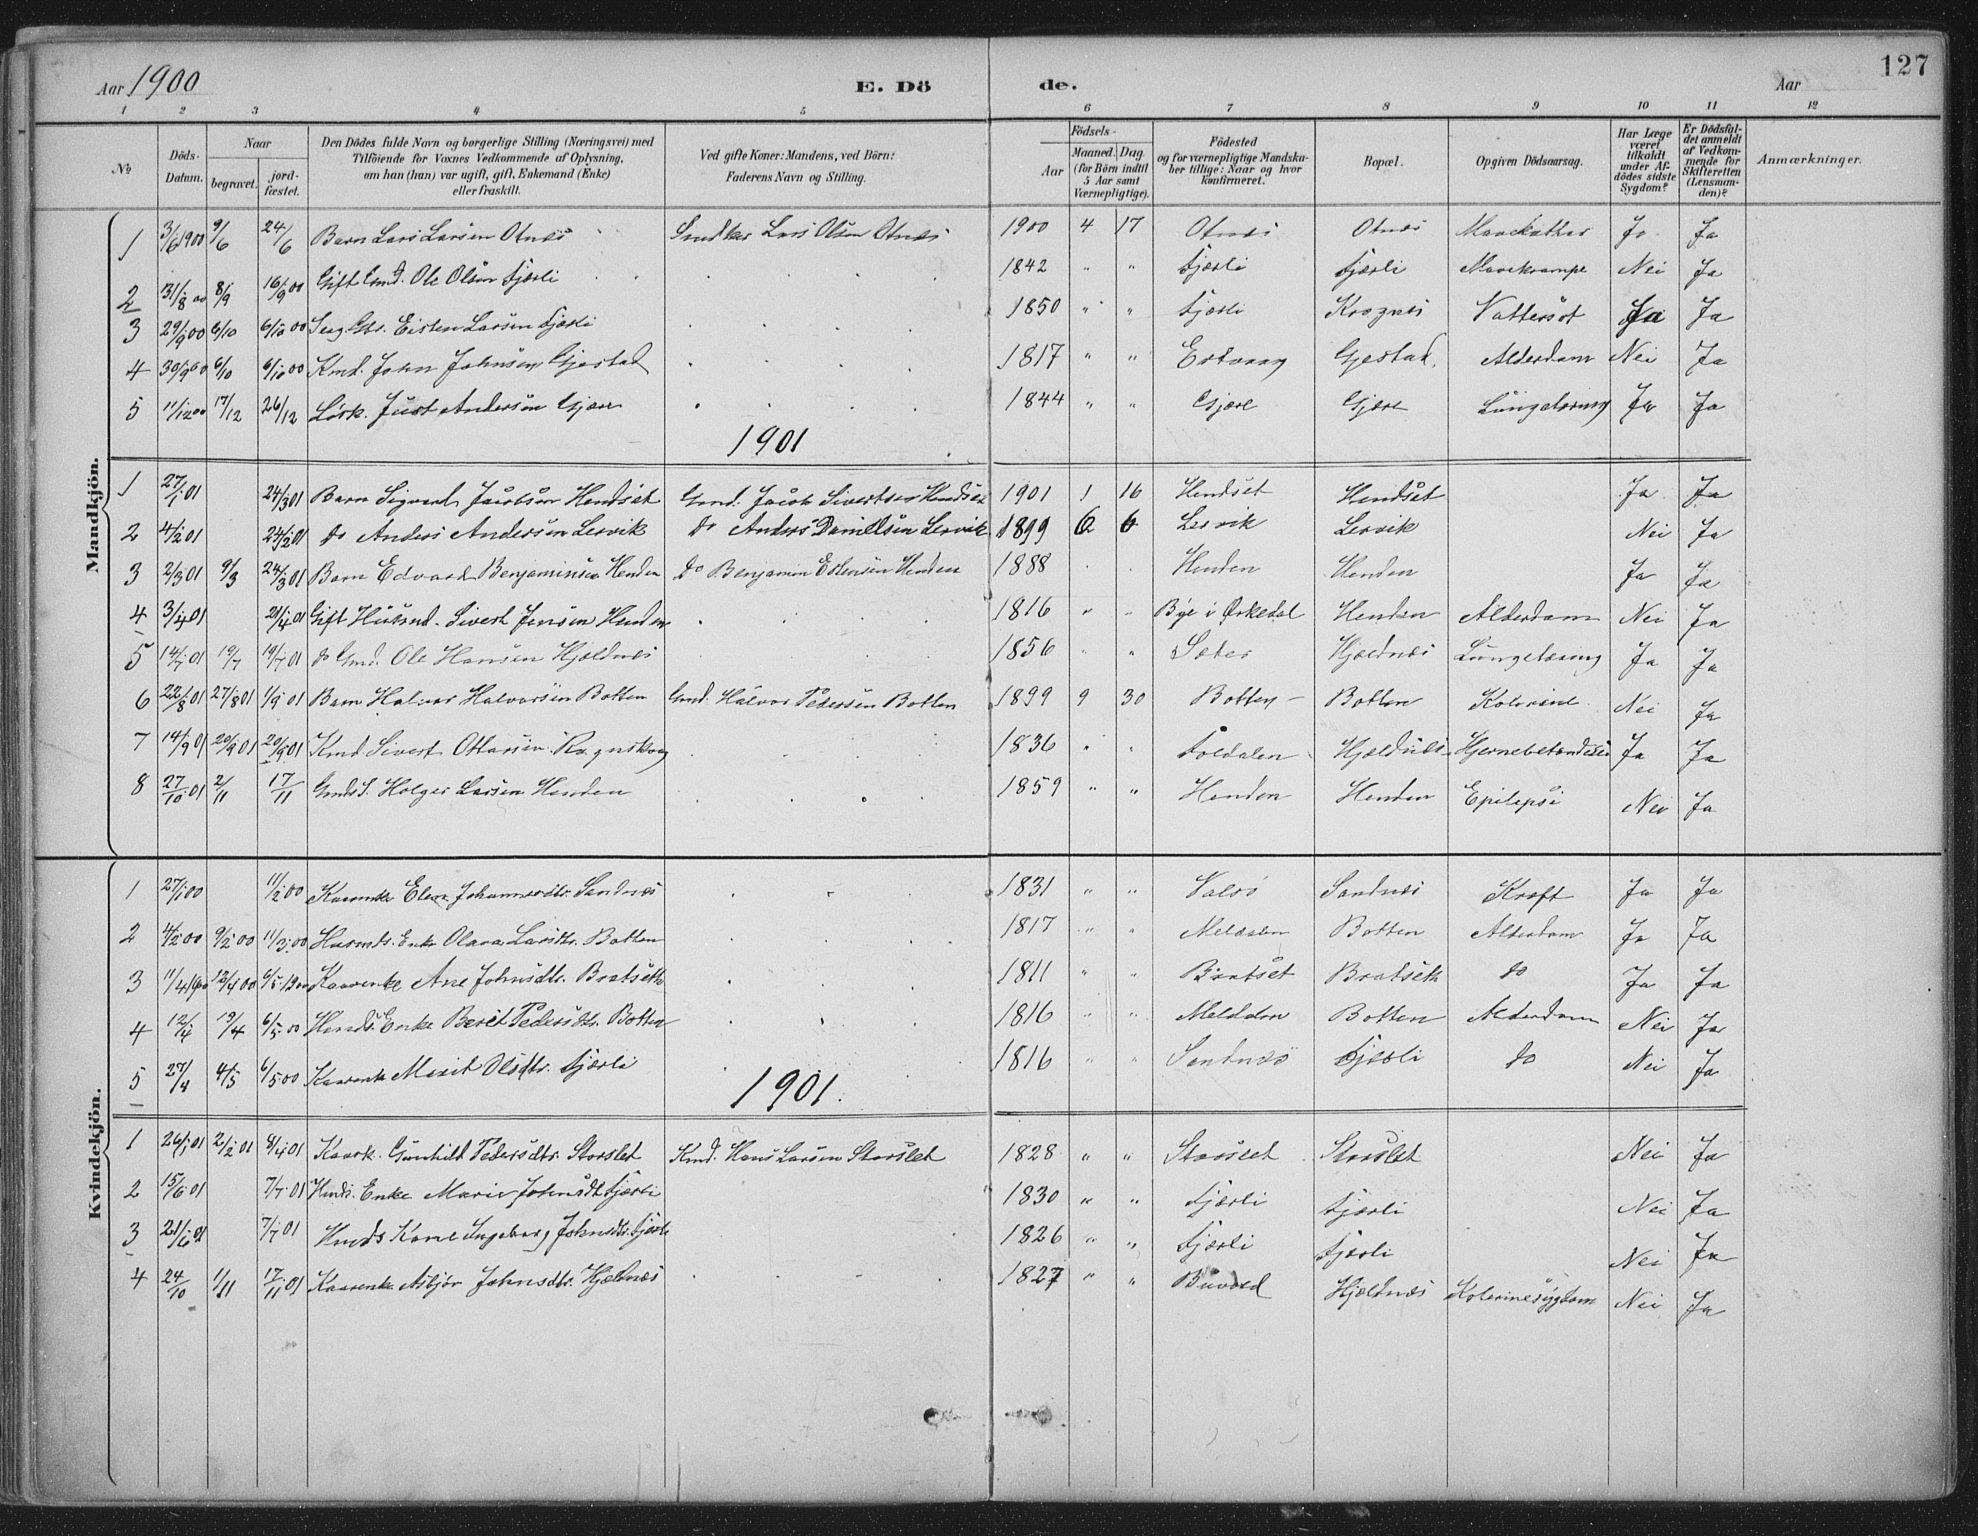 Aar 1900 E. Dö de. Aar 127
1 2 3 4 5 6 7 8 9 10 11 12
№ Döds-Datum. Naar begravet. jordfæstet. Den Dödes fulde Navn og borgerlige Stilling (Næringsvei) med Tilföiende for Voxnes Vedkommende af Oplysning, om han (hun) var ugift, gift, Enkemand (Enke) eller fraskilt. Ved gifte Koner: Mandens, ved Börn: Faderens Navn og Stilling. Födsels- Aar Maaned. Dag. (for Börn indtil 5 Aar samt Værnepligtige). Födested og for værnepligtige Mandskaber tillige: Naar og hvor konfirmeret. Bopæl. Opgiven Dödsaarsag. Har Læge været tilkaldt under Afdödes sidste Sygdom? Er Dödsfaldet anmeldt af Vedkommende for Skifteretten (Lensmanden)? Anmærkninger.
Mandkjön.
1 3/6 1900 9/6 24/6 Barn Lars Larsen Otnes Lars Olsen Otnes 1900 4 17 Otnes Otnes Mavekathar Ja Ja
2 31/8 00 8/9 16/9 00 Gift Gmd. Ole Olsen Fjærli 1842 " " Fjærli Fjærli Mavekrampe Nei Ja
3 29/9 00 6/10 6/10 00 Eisten Larsen Fjærli 1850 " " Fjærli Krognes Vattersot Ja Ja
4 30/9 00 6/10 6/10 00 Kmd. John Johnsen Gjestad 1817 " " Edvaag Gjestad Alderdom Nei Ja
5 11/12 00 17/12 26/12 Just Andersen Gjære 1844 " " Gjære Gjære Lungetæring Ja Ja
1901
1 27/1 01 24/3 01 Barn Sigvard Jacobsen Hendset Gmd. Jacob Sivertsen Hendset 1901 1 16 Hendset Hendset Ja Ja
2 4/2 01 24/2 01 do Anders Andersen Lervik do Anders Danielsen Lervik 1899 6 6 Lervik Lervik Nei Ja
3 2/3 01 9/3 24/3 01 Barn Edvard Benjaminsen Henden do Benjamin Estensen Henden 1888 Henden Henden Ja Ja
4 3/4 01 21/4 01 Gift Husmd. Sivert Jensen Henden 1816 " " Bye i Orkedal Henden Alderdom Nei Ja
5 14/7 01 19/7 19/7 01 do Gmd. Ole Hansen Hjeldnes 1856 " " Sæter Hjældnes Lungetæring Ja Ja
6 22/8 01 27/8 01 1/9 01 Barn Halvor Halvorsen Botten Gmd. Halvor Pedersen Botten 1899 9 30 Botten Botten Kolerine Nei Ja
7 14/9 01 20/9 01 20/9 01 Kmd Sivert 1836 " " Foldalen Hjældnes Hjernebetændelse Ja Ja
8 27/10 01 2/11 17/11 Holger Larsen Henden 1859 " " Henden Henden Epilepsi Nei Ja
Kvindekjön.
1 27/1 00 11/2 00 Kaarenke Elen Johannesdtr. Sandnes 1831 " " Valsø Sandnes Kræft Ja Ja
2 4/2 00 9/2 00 11/3 00 Husmds. Enke Olava Larsdtr. Botten 1817 " " Meldalen Botten Alderdom Ja Ja
3 11/4 1900 12/4 00 6/5 1900 Kaarenke Ane Johnsdtr. Bratseth 1811 " " Bratset Bratseth do Ja Ja
4 12/4 19/4 6/5 00 Hmds. Enke Beret Pedersdtr. Botten 1816 " " Meldalen Botten Alderdom Nei Ja
5 27/4 4/5 6/5 00 Kaarenke Marit Olsdtr. Fjærli 1816 " " Sandnes Fjærli do Nei Ja
1901.
1 26/1 01 2/2 01 8/4 01 Kaark. Gunhild Pedersdtr. Storslet Kmd. Hans Larsen Storslet 1828 " " Storslet Storslet Nei Ja
2 15/6 01 7/7 01 Hmds. Enke Marie Johnsdt Fjærli 1830 " " Fjærli Fjærli Nei Ja
3 21/6 01 7/7 01 Hmds Kone Ingeborg Johnsdtr. Fjærli 1826 " " Fjærli Fjærli Nei Ja
4 24/10 1/11 17/11 01 Kaarenke Asbjør Johnsdtr. Hjeldnes 1827 " " Buvold Hjeldnes Kolerinesygdom Nei Ja